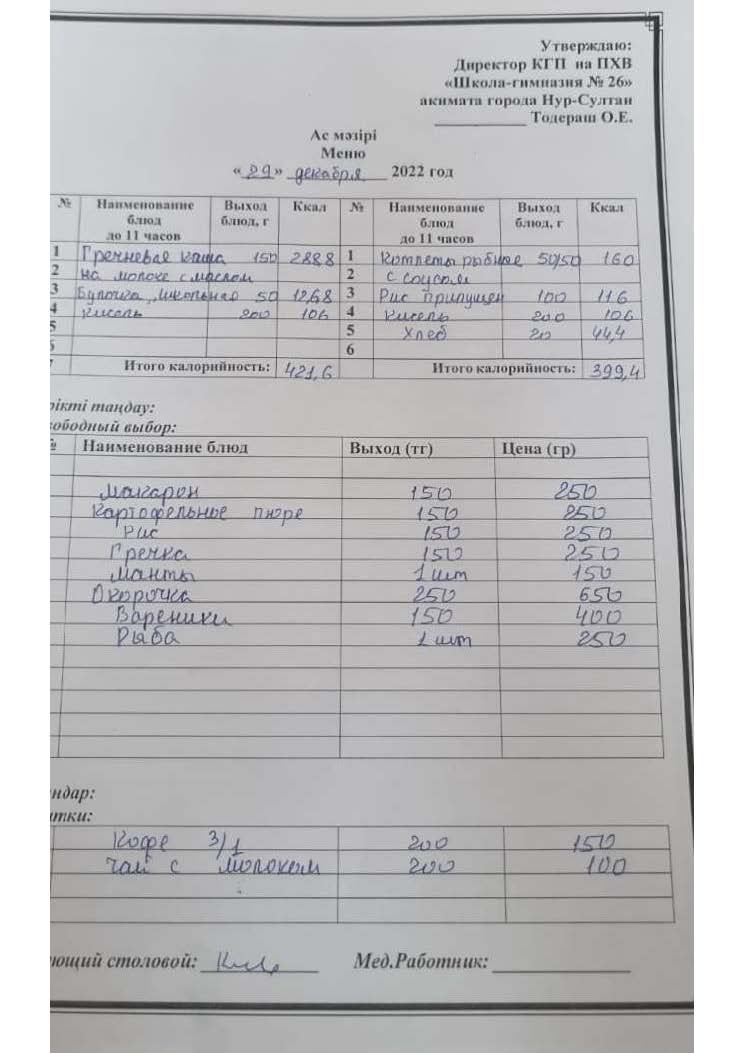 Утверждаю:
Директор КГП на ПХВ
«Школа-гимназия № 26»
акимата города Нур-Султан
____________ Тодераш О.Е.
Ас мәзірі
Меню
«29» декабря 2022 год
№ Наименование блюд до 11 часов Выход блюд, г Ккал № Наименование блюд до 11 часов Выход блюд, г Ккал
1 Гречневая каша 150 288,8 1 Котлеты рыбные 50/50 160
2 на молоке с маслом 2 с соусом
3 Булочка школьная 50 126,8 3 Рис припущен 100 116
4 кисель 200 106 4 кисель 200 106
5 5 хлеб 20 44,4
6
Итого калорийность: 421,6 Итого калорийность: 399,4
рікті таңдау:
ободный выбор:
№ Наименование блюд Выход (тг) Цена (гр)
Макарон 150 250
Картофельное пюре 150 250
Рис 150 250
Гречка 150 250
Манты 1 шт 150
Окорочка 250 650
Вареники 150 400
Рыба 1 шт 250
ндар:
тки:
Кофе 3/1 200 150
Чай с молоком 200 100
ющий столовой: Мед.Работник: